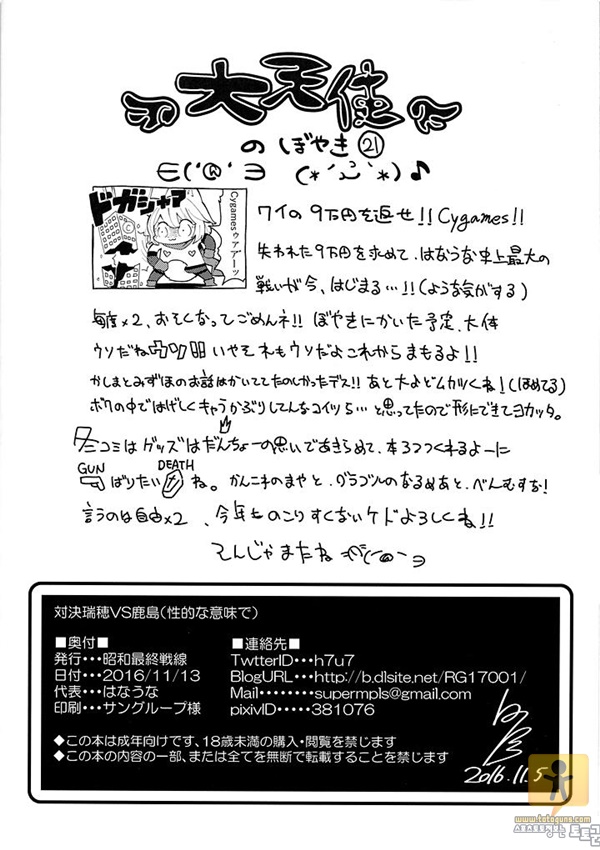 大天使
のぼやき㉑
∈(´@`∋ (*´ふ`*)♪
ドガシャア
Cygamesゥアアーッ
ワイの9万円を返せ!!Cygames!!
失われた9万円を求めて、はなうな史上最大の
戦いが今、はじまる…!!(ような気がする)
毎度×2、おそくなってごめんネ!!ぼやきにかいた予定、大体
ウソだね いやそれもウソだよこれからまもるよ!!
かしまとみずほのお話はかいててたのしかったデス!!あと大よどムカツくね!(ほめてる)
ボクの中ではげしくキャラかぶりしてんなコイツら…と思ってたので形にできてヨカッタ。
コミはグッズはだんちょーの思いであきらめて、本2つつくれるよーに
GUN ばりたい DEATH ね。かんコれのまやと、グラブルのなるめあと、べんむすな!
言うのは自由×2、今年ものこりすくないケドよろしくね!!
てんじゃまたね
対決瑞穂VS鹿島(性的な意味で)
■奥付■
発行・・・昭和最終戦線
日付・・・2016/11/13
代表・・・はなうな
印刷・・・サングループ様
■連絡先■
TwtterID・・・h7u7
BlogURL・・・http://b.dlsite.net/RG17001/
Mail・・・・・・・supermpls@gmail.com
pixivID・・・・・381076
◆この本は成年向けです、18歳未満の購入・閲覧を禁じます
◆この本の内容の一部、または全てを無断で転載することを禁じます
2016.11.5
www.totoguns.com
토토군